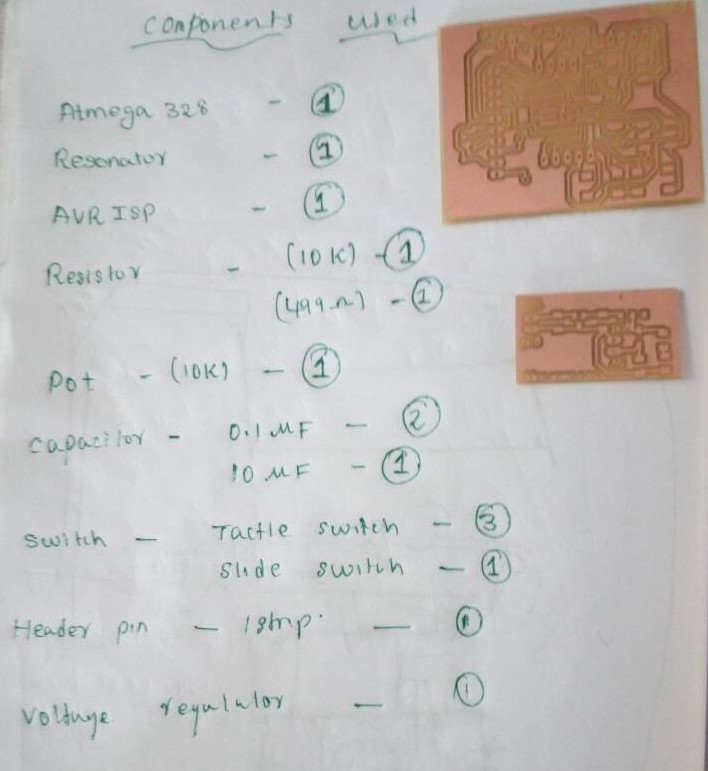 Components used
Atmega 328 - 1
Resonator - 1
AVR ISP - 1
Resistor - (10K) - 1
(499Ω) - 1
Pot - (10K) - 1
Capacitor - 0.1 MF - 2
10 MF - 1
Switch - Tactle switch - 3
Slide switch - 1
Header pin - 1 strip - 1
Voltage regulator - 1